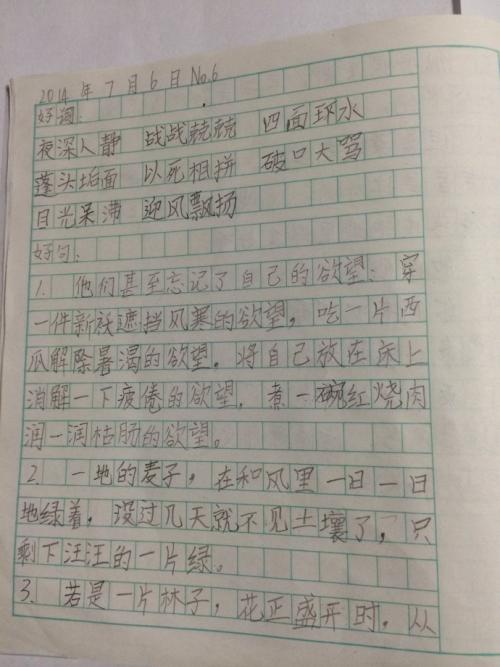 2014 年 7 月 6 日 No.6
好词:
夜深人静 战战兢兢 四面环水
蓬头垢面 以死相拼 破口大骂
目光呆沸 迎风飘扬
好句:
1. 他们甚至忘记了自己的欲望：穿
一件新袄遮挡风寒的欲望，吃一片西
瓜解除暑渴的欲望，将自己放在床上
消解一下疲倦的欲望，煮一碗红烧肉
润一润枯肠的欲望。
2. 一地的麦子，在和风里一日一日
地绿着，没过几天就不见土壤了，只
剩下汪汪的一片绿。
3. 若是一片林子，花正盛开时，从